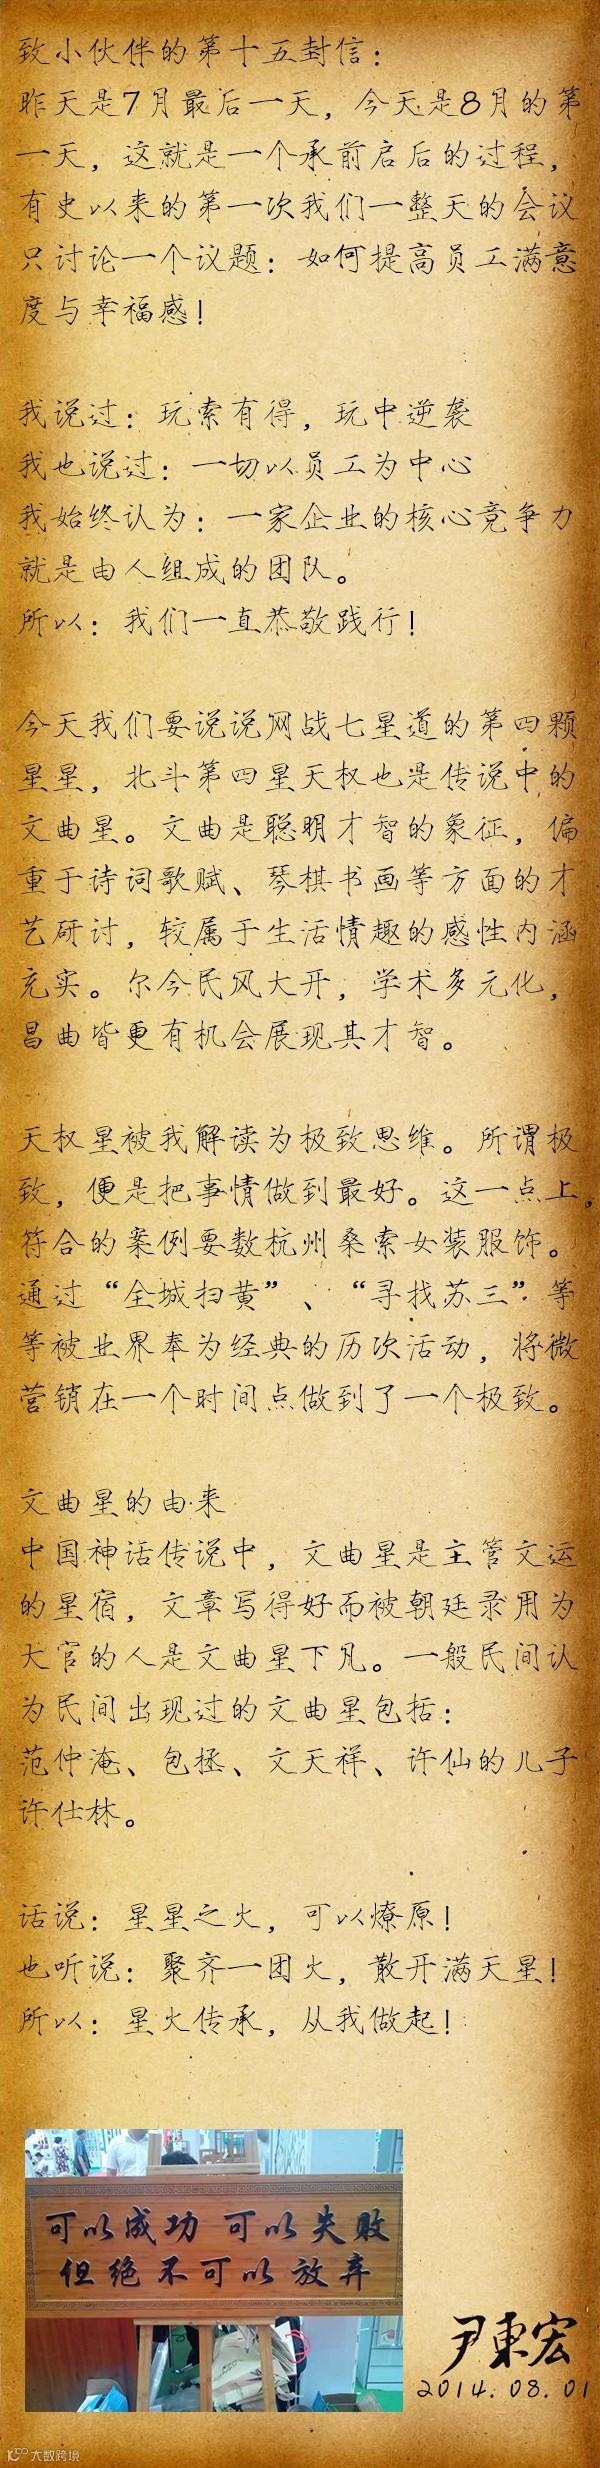 致小伙伴的第十五封信：
昨天是7月最后一天，今天是8月的第
一天，这就是一个承前启后的过程，
有史以来的第一次我们一整天的会议
只讨论一个议题：如何提高员工满意
度与幸福感！
我说过：玩索有得，玩中逆袭
我也说过：一切以员工为中心
我始终认为：一家企业的核心竞争力
就是由人组成的团队。
所以：我们一直恭敬践行！
今天我们要说说网战七星道的第四颗
星星，北斗第四星天权也是传说中的
文曲星。文曲是聪明才智的象征，偏
重于诗词歌赋、琴棋书画等方面的才
艺研讨，较属于生活情趣的感性内涵
充实。尔今民风大开，学术多元化，
昌曲皆更有机会展现其才智。
天权星被我解读为极致思维。所谓极
致，便是把事情做到最好。这一点上，
符合的案例要数杭州桑索女装服饰。
通过“全城扫黄”、“寻找苏三”等
等被业界奉为经典的历次活动，将微
营销在一个时间点做到了一个极致。
文曲星的由来
中国神话传说中，文曲星是主管文运
的星宿，文章写得好而被朝廷录用为
大官的人是文曲星下凡。一般民间认
为民间出现过的文曲星包括：
范仲淹、包拯、文天祥、许仙的儿子
许仕林。
话说：星星之火，可以燎原！
也听说：聚齐一团火，散开满天星！
所以：星火传承，从我做起！
可以成功 可以失败
但绝不可以放弃
尹东宏
2014.08.01
大数跨境